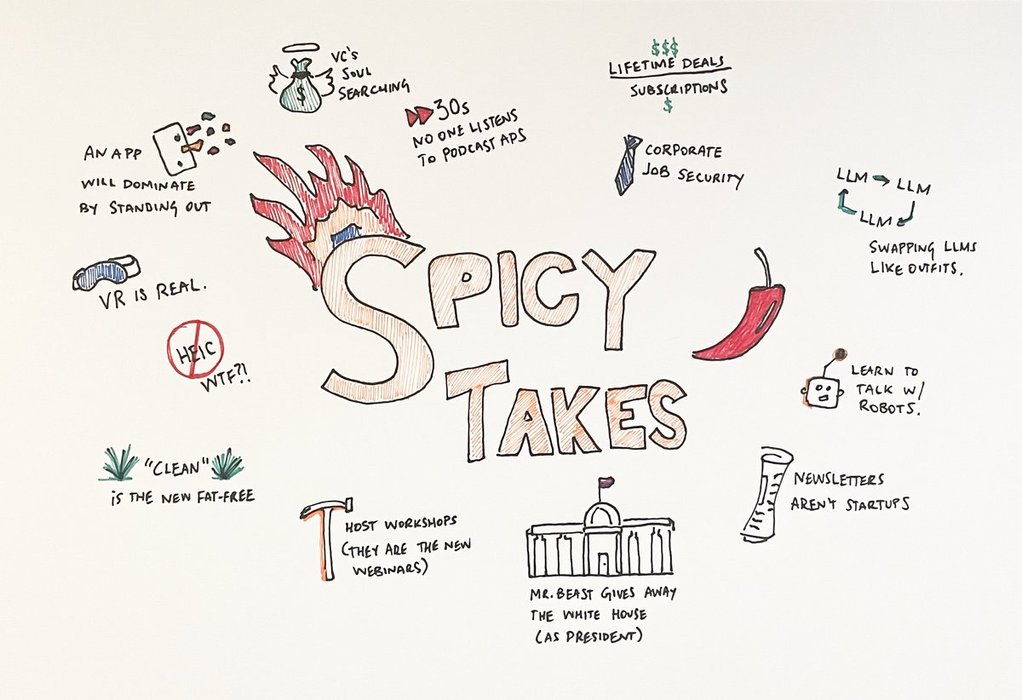 VC's
SOUL
SEARCHING
$
30s
NO ONE LISTENS
TO PODCAST APS
$$$
LIFETIME DEALS
SUBSCRIPTIONS
$
AN APP
WILL DOMINATE
BY STANDING OUT
CORPORATE
JOB SECURITY
LLM → LLM
LLM
SWAPPING LLMS
LIKE OUTFITS.
VR IS REAL.
HEIC
WTF?!
SPICY
TAKES
LEARN TO
TALK W/
ROBOTS.
"CLEAN"
IS THE NEW FAT-FREE
HOST WORKSHOPS
(THEY ARE THE NEW
WEBINARS)
MR. BEAST GIVES AWAY
THE WHITE HOUSE
(AS PRESIDENT)
NEWSLETTERS
AREN'T STARTUPS